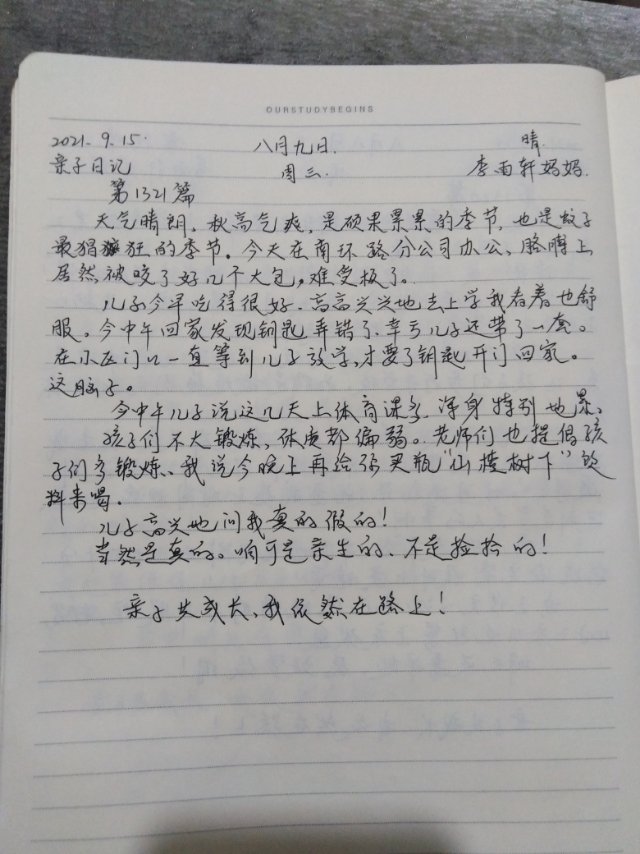 OURSTUDYBEGINS
2021.9.15. 八月九日. 晴.
亲子日记 周三. 李雨轩妈妈.
第1321篇
天气晴朗，秋高气爽，是硕果累累的季节，也是蚊子
最猖狂的季节。今天在南环路分公司办公，胳膊上
居然被咬了好几个大包，难受极了。
儿子今早吃得很好，高高兴兴地去上学我看着也舒
服。今中午回家发现钥匙弄错了，幸亏儿子还带了一套。
在小区门口一直等到儿子放学，才要了钥匙开门回家。
这脑子。
今中午儿子说这几天上体育课多，浑身特别地累，
孩子们不大锻炼，体质都偏弱。老师们也提倡孩
子们多锻炼、我说今晚上再给你买瓶“山楂树下”饮
料来喝.
儿子高兴地问我真的假的！
当然是真的。咱可是亲生的，不是捡拾的！
亲子共成长，我依然在路上！